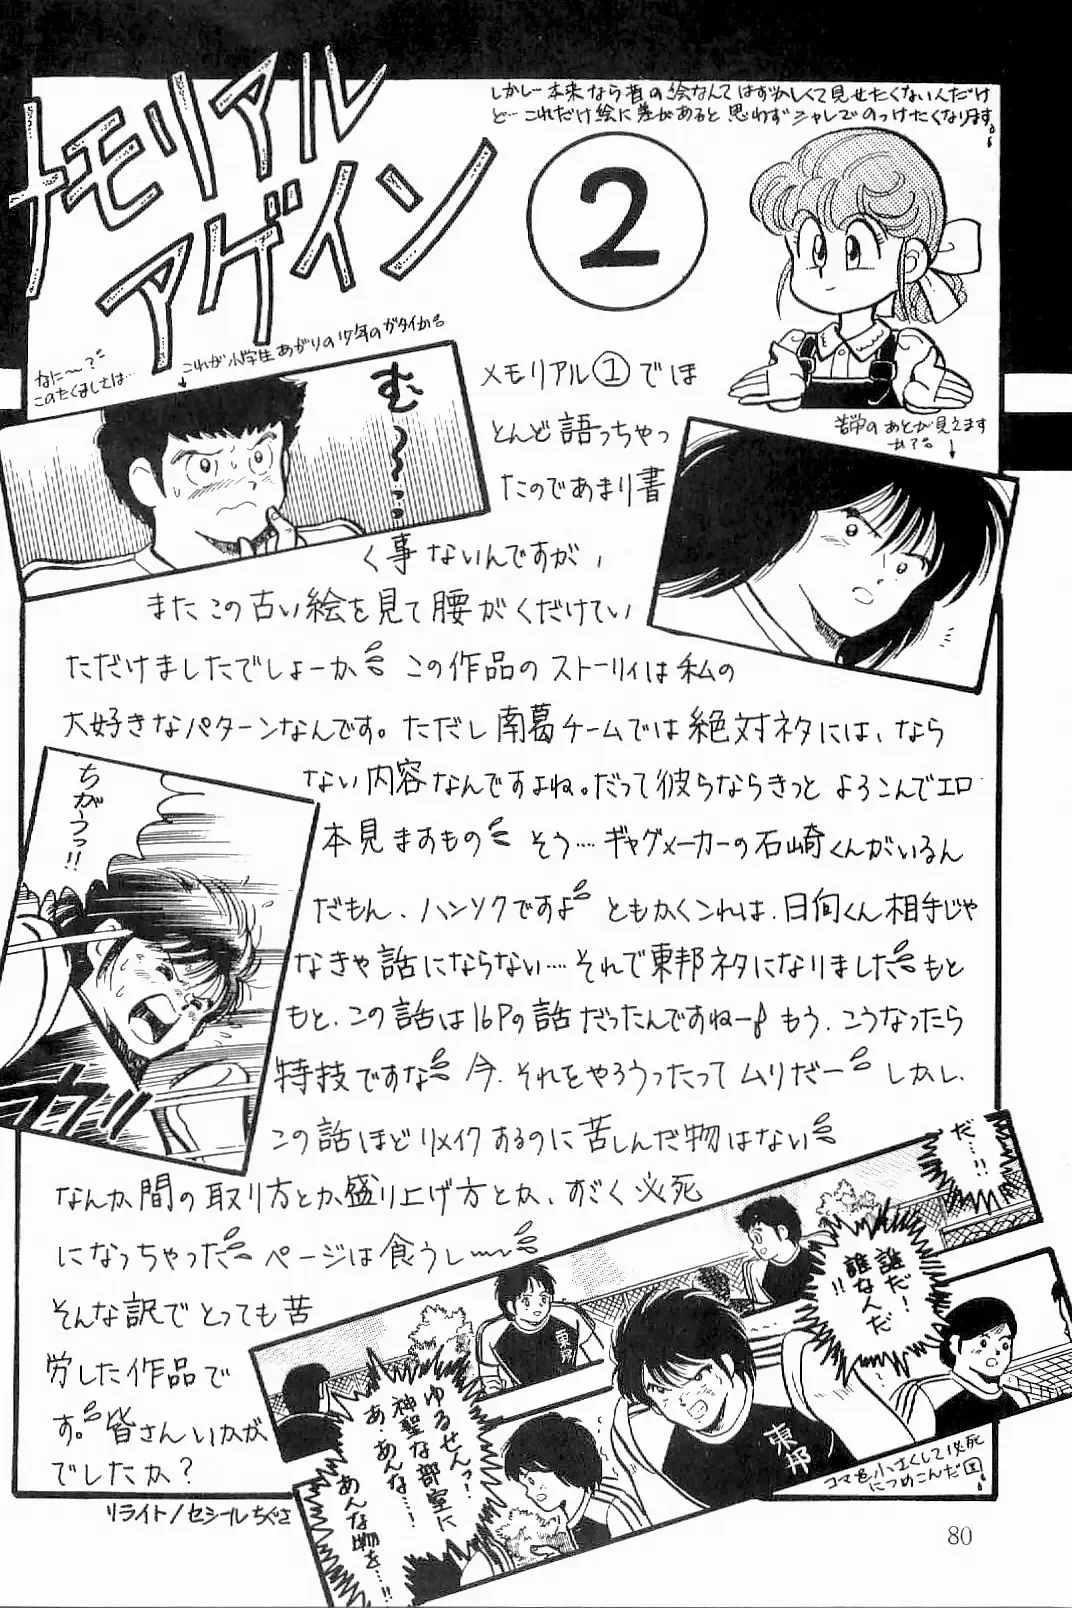 しかし…本来なら昔の絵なんてはずかしくて見せたくないんだけ
ど…これだけ絵に差があると思わずシャレでのっけたくなります。
メモリアル
アゲイン
2
なに〜?
このたくましさは…
これが小学生あがりの17年のガタイか。
む〜…
苦労のあとが見えます
か?。
メモリアル①でほ
とんど語っちゃっ
たのであまり書
く事ないんですが、
またこの古い絵を見て腰がくだけてい
ただけましたでしょーか この作品のストーリィは私の
大好きなパターンなんです。ただし南葛チームでは絶対ネタには、なら
ない内容なんですよね。だって彼らならきっとよろこんでエロ
本見ますもの そう…ギャグメーカーの石崎くんがいるん
だもん、ハンソクですよ ともかくこれは、日向くん相手じゃ
なきゃ話にならない…それで東邦ネタになりました もと
もと、この話は16Pの話だったんですねー もう、こうなったら
特技ですな 今、それをやろうったってムリだー しかし、
この話ほどリメイクするのに苦しんだ物はない
なんか間の取り方とか盛り上げ方とか、すごく必死
になっちゃった ページは食うし〜
そんな訳でとっても苦
労した作品で
す。皆さんいかが
でしたか?
ちがうっ!!
だ…!!
誰だ!
誰なんだ
!!
ゆるせん…!
神聖な部室に
あ・あんな……!
あんな物を…!!
東邦
東邦
コマも小さくして必死
につめこんだ図
リライト/セシールちぐさ
80